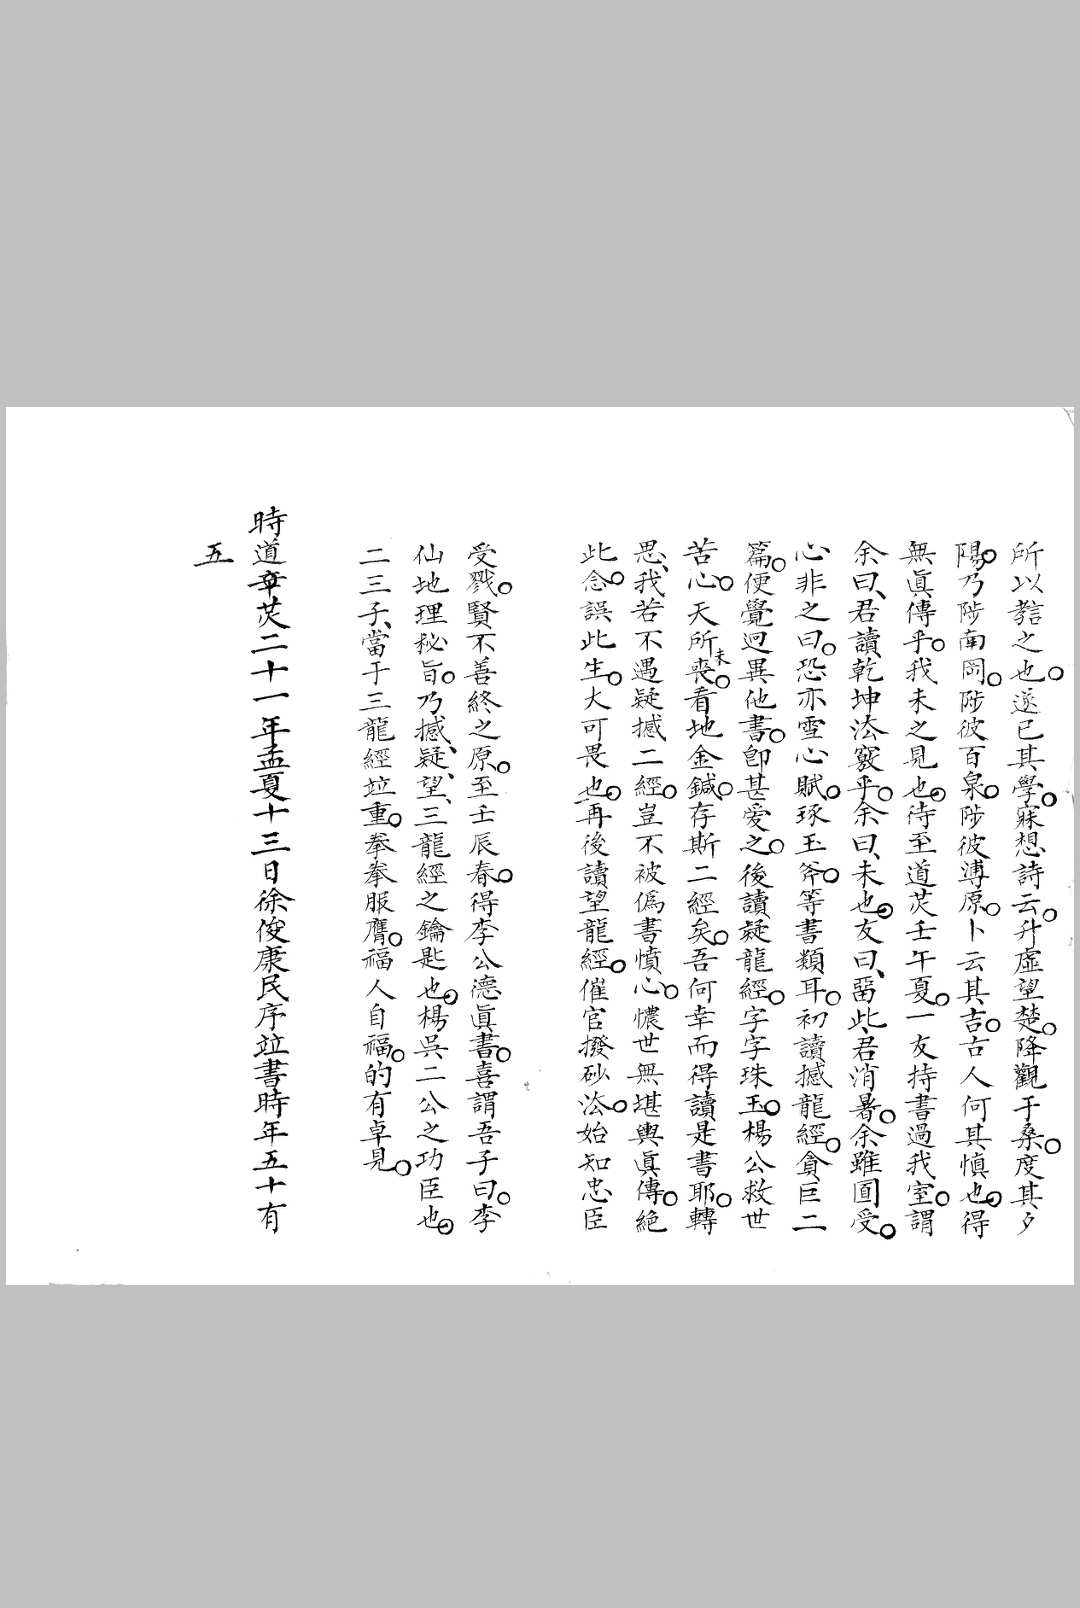 所以嗸言之也。遂已其學。寐想詩云。升虛望楚。降觀于桑。度其夕
陽。乃陟南岡。陟彼百泉。陟彼溥原。卜云其吉。古人何其慎也。得
無眞傳乎。我未之見也。待至道茂壬午夏。一友持書過我室。謂
余曰、君讀乾坤法竅乎。余曰、未也。友曰、畱此、君消暑。余雖囿受。
心非之曰。恐亦雪心賦。琢玉斧。等書類耳。初讀撼龍經。貪巨二
篇。便覺迥異他書。卽甚愛之。後讀疑龍經。字字珠玉。楊公救世
苦心。天所未喪。看地金鍼。存斯二經矣。吾何幸而得讀是書耶。轉
思、我若不遇疑撼二經。豈不被僞書憤心。懷世無堪輿眞傳。絕
此念。誤此生。大可畏也。再後讀望龍經。催官撥砂法。始知忠臣
受戮。賢不善終之原。至壬辰春。得李公德眞書。喜謂吾子曰。李
仙地理秘旨。乃撼、疑、望、三龍經之鑰匙也。楊吳二公之功臣也。
二三子、當于三龍經竝重。拳拳服膺。福人自福。的有卓見。
時道章茂二十一年孟夏十三日徐俊康民序竝書時年五十有
五